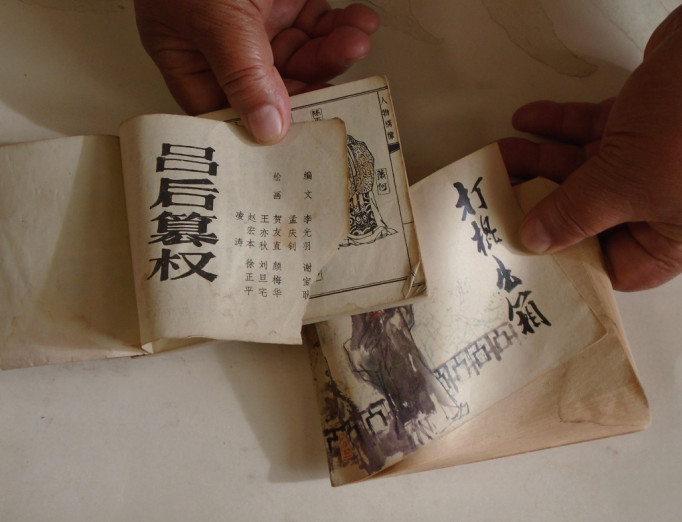 吕后篡权
编文 李光羽 谢宝耿
孟庆钊
绘画 贺友直 颜梅华
王亦秋 刘旦宅
赵宏本 徐正平
凌涛
人物绣像
打棍出箱